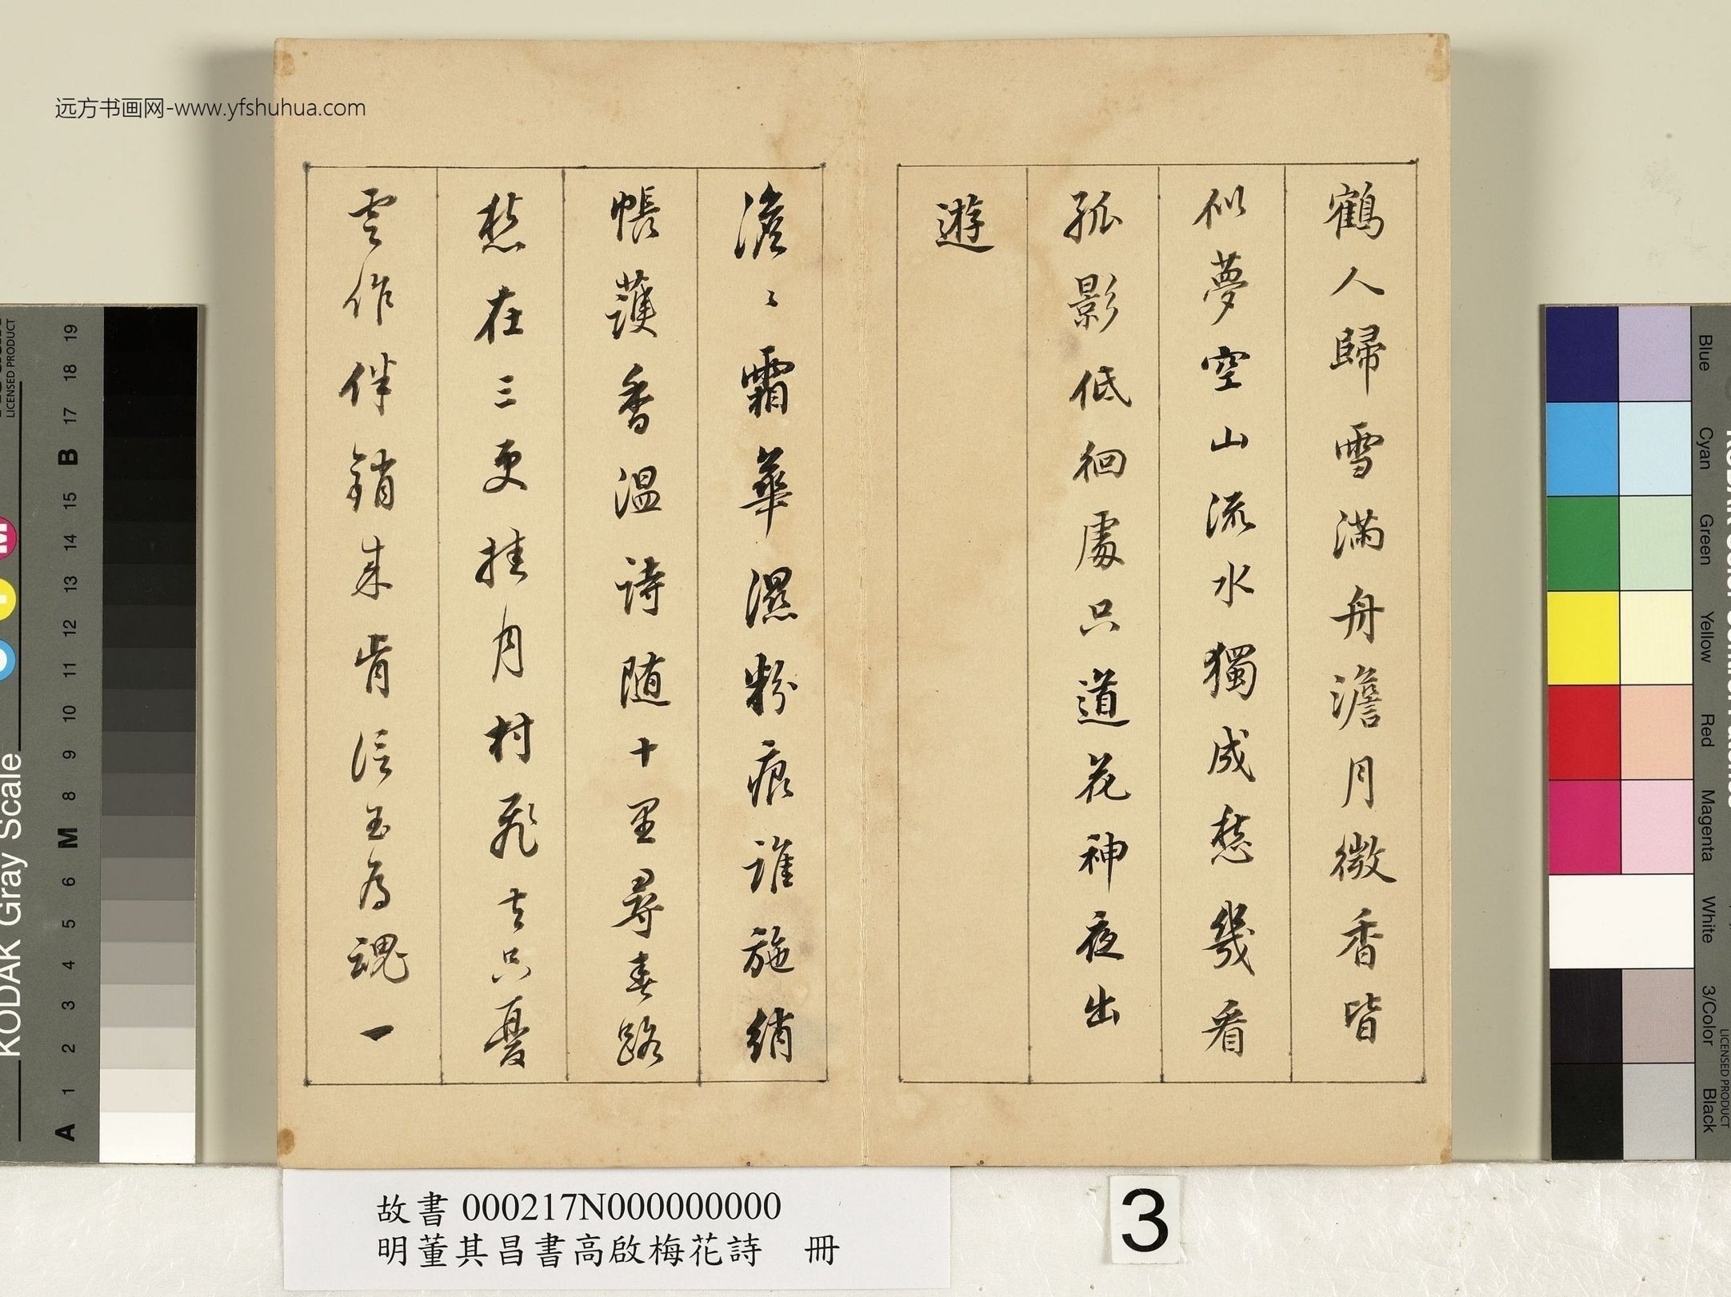 远方书画网-www.yfshuhua.com
鶴人歸雪滿舟澹月微香皆
似夢空山流水獨成愁幾看
孤影低徊處只道花神夜出
遊
澹〻霜華濕粉痕誰施綃
帳護香溫詩随十里尋春路
愁在三更挂月村飛去只憂
雲作伴銷来肯信玉為魂一
故書 000217N000000000
明董其昌書高啟梅花詩 冊
3
KODAK Gray Scale
LICENSED PRODUCT
A 1 2 3 4 5 6 M 8 9 10 11 12 13 14 15 B 17 18 19
Blue
Cyan
Green
Yellow
Red
Magenta
White
3/Color
Black
LICENSED PRODUCT